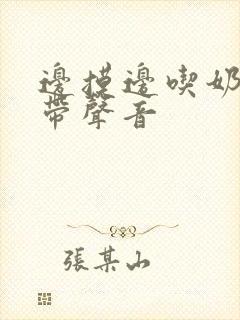 邊摸邊喫奶
帶聲音
張某山